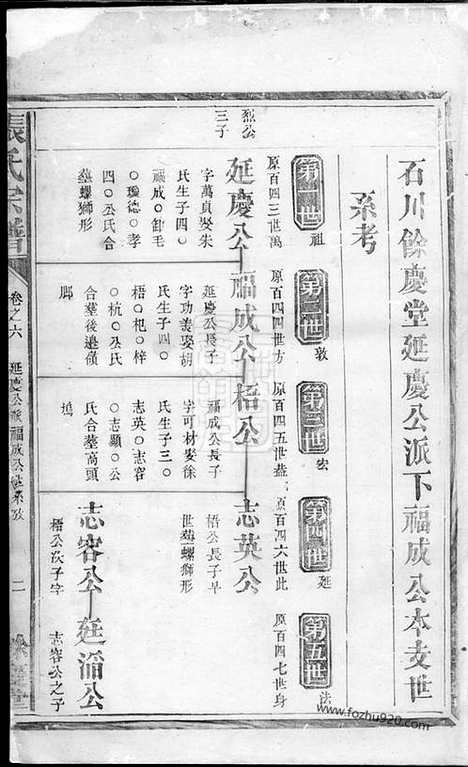 石川餘慶堂延慶公派下福成公本支世
系考
第一世 祖
原百四三世萬
第二世 敦
原百四四世方
第三世 宏
原百四五世盡
第四世 廷
原百四六世此
第五世 法
原百四七世身
烈公
三子
延慶公 福成公 梧公 志英公
字萬貞娶朱
氏生子四〇
福成〇卸毛
〇瓊德〇孝
四〇公氏合
塟螺獅形
延慶公長子
字功義娶胡
氏生子四〇
梧〇杞〇梓
〇杭〇公氏
合塟後邉嶺
脚
福成公長子
字可材娶徐
氏生子三〇
志英〇志容
〇志顯〇公
氏合塟高頭
塢
梧公長子早
世塟螺獅形
志容公 廷滔公
梧公次子字
志容公之子
張氏宗譜
卷之六
延慶公派福成公世系考
二
www.fozhu920.com